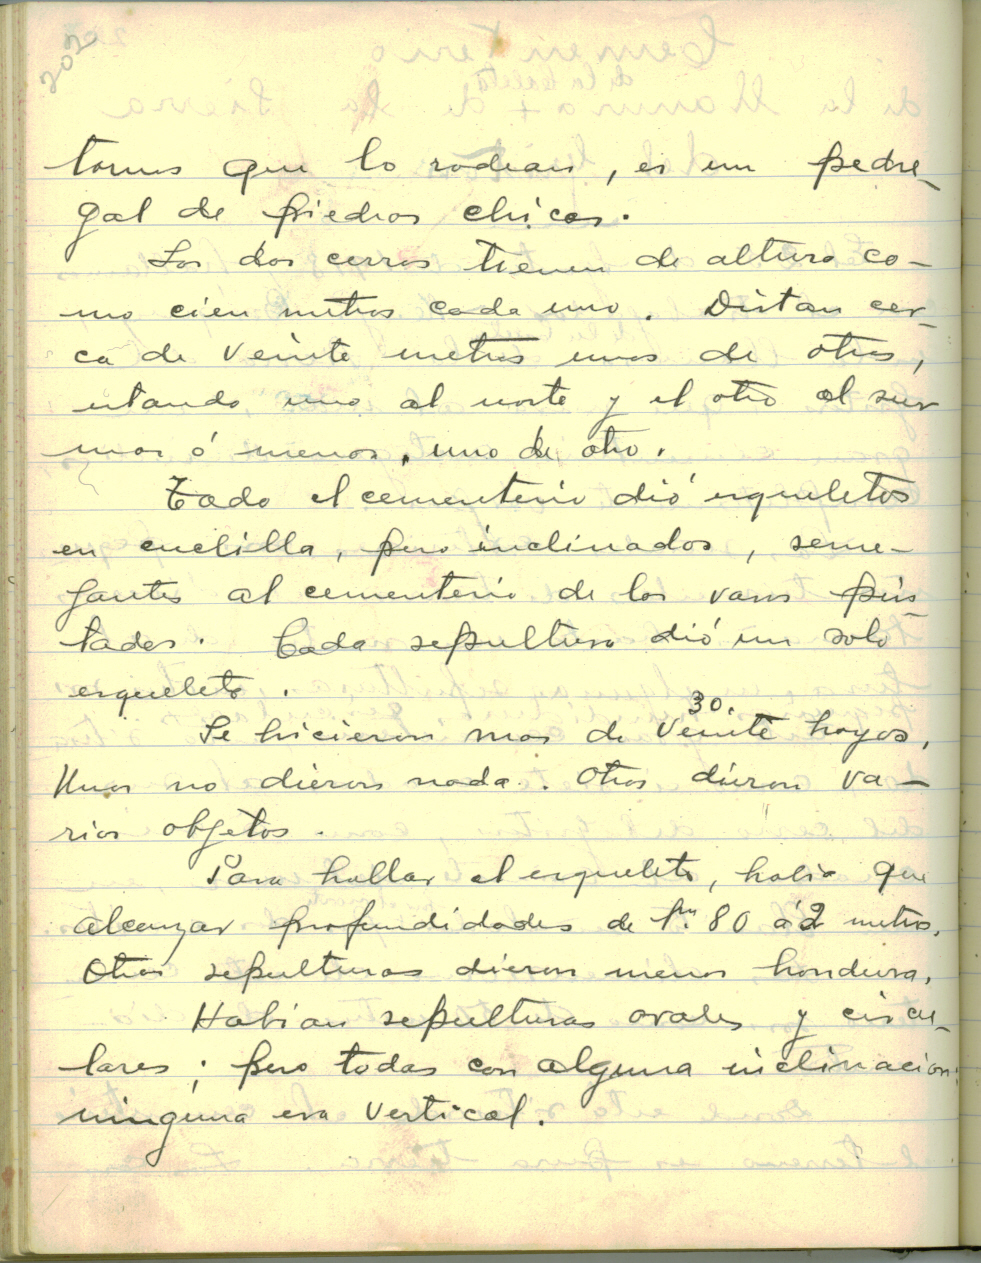 202
tornos que lo rodean, es un pedre-
gal de piedras chicas.
Los dos cerros tienen de altura co-
mo cien metros cada uno. Distan cer-
ca de veinte metros unos de otros,
estando uno al norte y el otro al sur
mas ó menos, uno de otro.
Todo el cementerio dió esqueletos
en cuclilla, pero inclinados, seme-
jantes al cementerio de los vasos pin-
tados. Cada sepultura dió un solo
esqueleto.
30.
Se hicieron mas de veinte hoyos,
Unos no dieron nada. Otros dieron va-
rios objetos.
Para hallar el esqueleto, habia que
alcanzar profundidades de 1m. 80 á 2 metros.
Otras sepulturas dieron menos hondura.
Habian sepulturas ovales y circu-
lares; pero todas con alguna inclinacion;
ninguna era vertical.